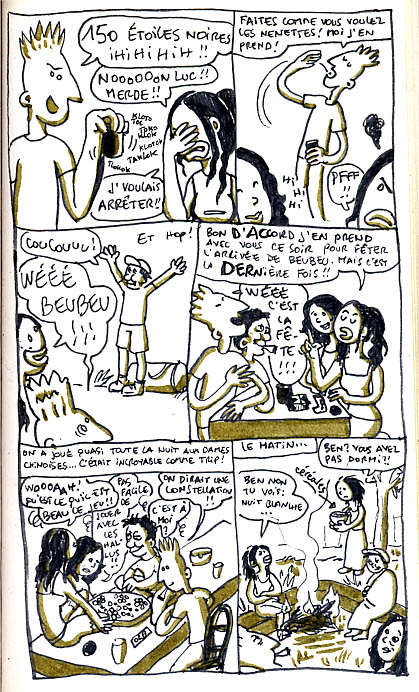 150 ÉTOILES NOIRES
iHiHiHiH !!
NOOOOOON LUC!!
MERDE !!
KLOTO
TOC
TAKLOK
J'VOULAIS
ARRÊTER!!
FAITES COMME VOUS VOULEZ
LES NENETTES! MOI J'EN
PREND!
Hi
Hi
Hi
PFFF
!!
COUCOUUU!
ET HOP!
WÉÉÉ
BEUBEU
!!!
BON D'ACCORD J'EN PREND
AVEC VOUS CE SOIR POUR FÊTER
L'ARRIVÉE DE BEUBEU. MAIS C'EST
LA DERNIÈRE FOIS!!
WÉÉÉ
C'EST
LA
FÊ-
TE
!!!
ON A JOUÉ QUASI TOUTE LA NUIT AUX DAMES
CHINOISES... C'ÉTAIT INCROYABLE COMME TRIP!
WOOOAAH!
QU'EST CE QU'IL EST
BEAU CE JEU!!
PAS
FACILE
DE
JOUER
AVEC
LES
HAL-
LUS!!
ON DIRAIT UNE
CONSTELLATION!!
C'EST À
MOI
?
LE MATIN...
BEN? VOUS AVEZ
PAS DORMI?!
CÉRÉALES
BEN NON
TU VOIS:
NUIT BLANCHE